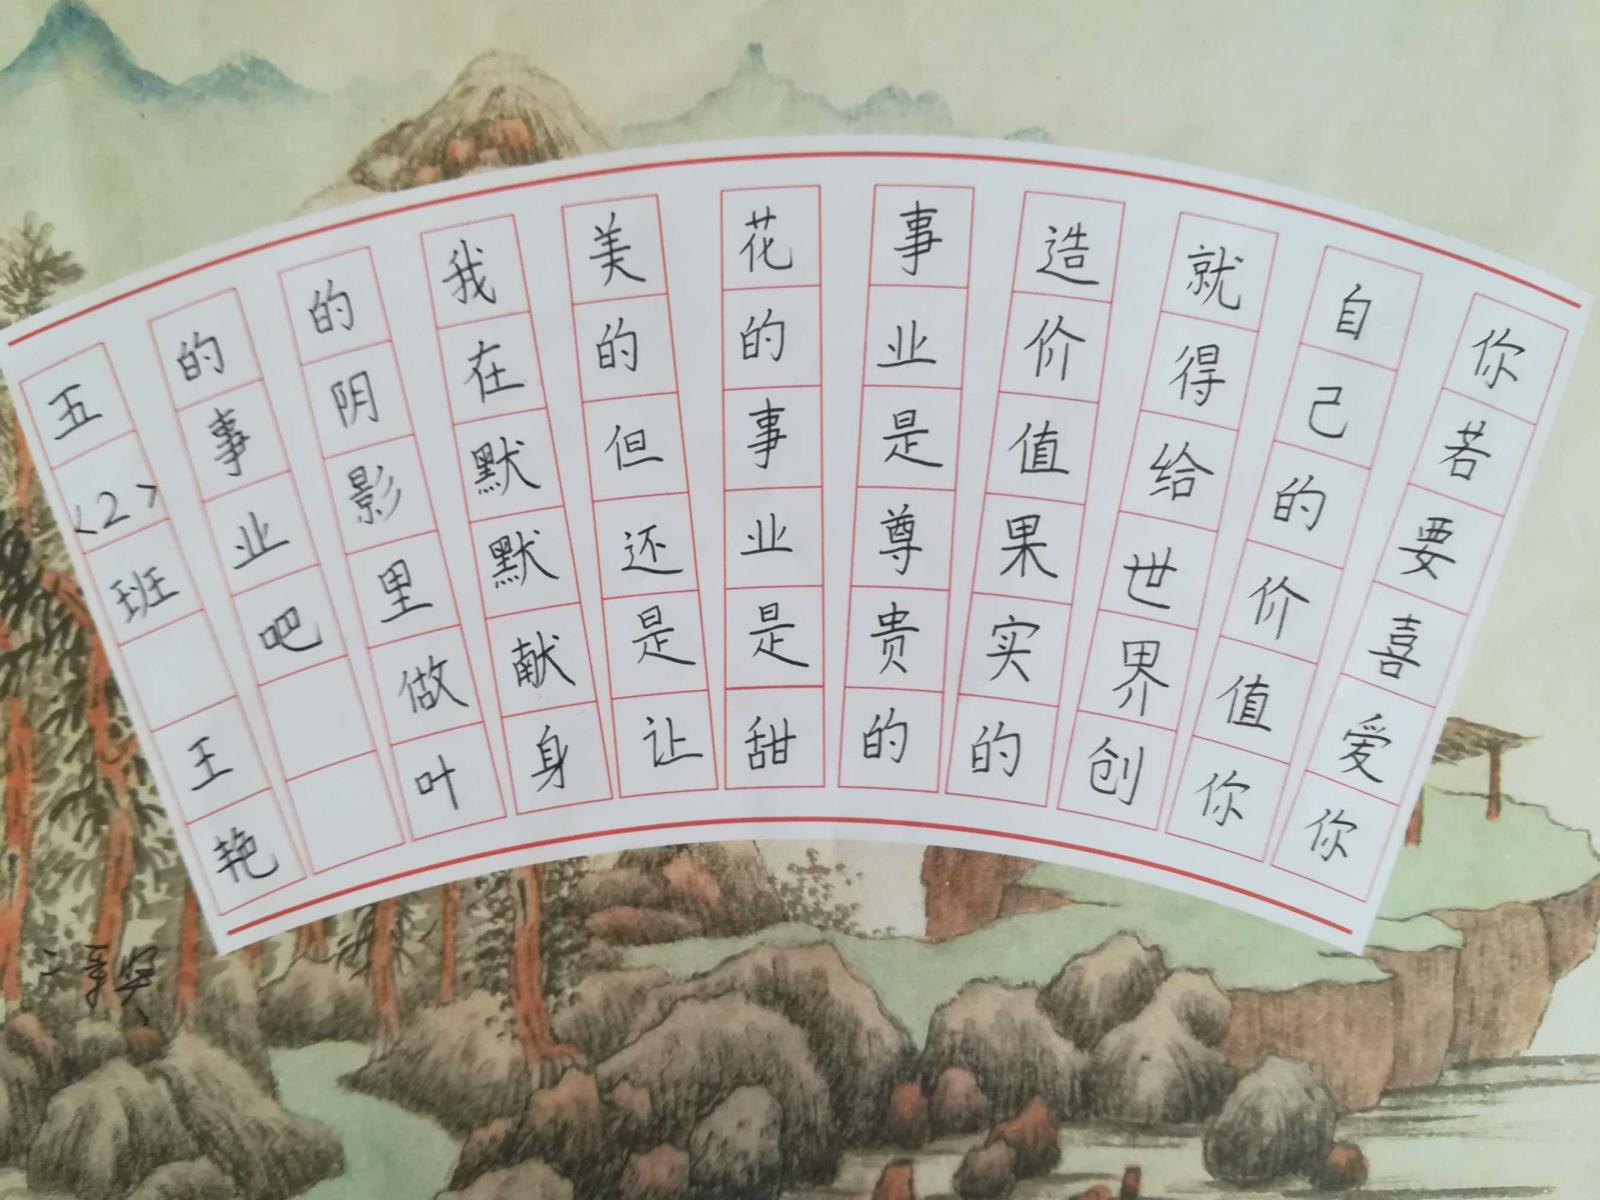 你若要喜爱你
自己的价值你
就得给世界创
造价值果实的
事业是尊贵的
花的事业是甜
美的但还是让
我在默默献身
的阴影里做叶
的事业吧
五<2>班 王艳